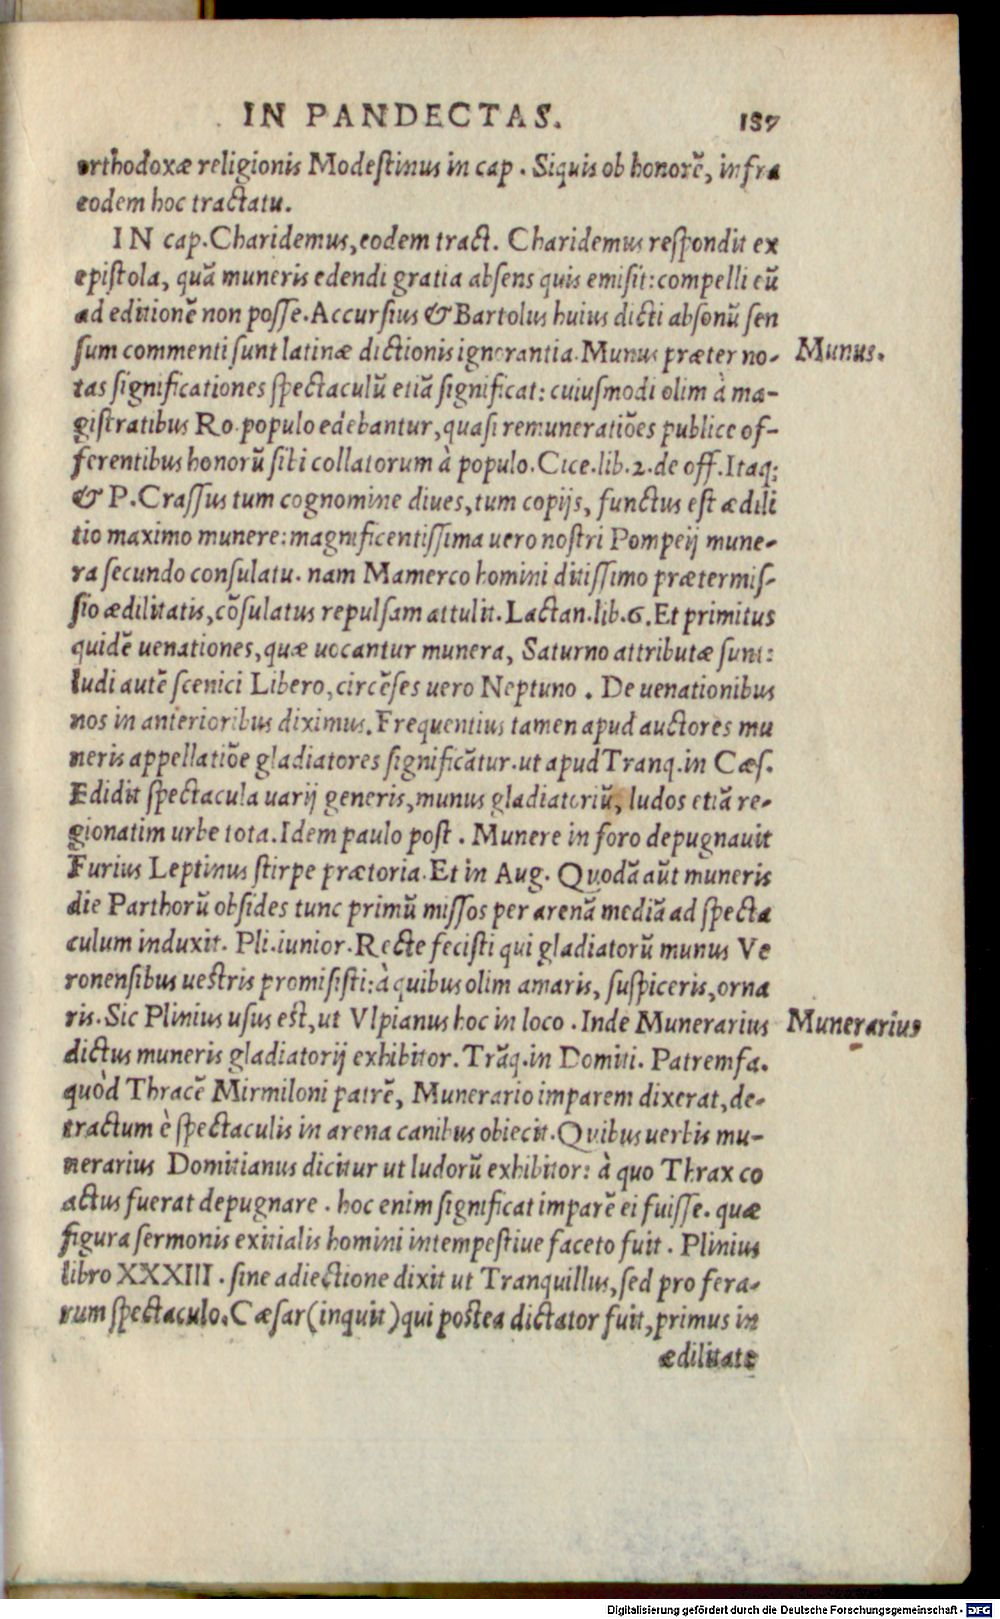 IN PANDECTAS. 187
orthodoxæ religionis Modestinus in cap. Siquis ob honorē, infra
eodem hoc tractatu.
IN cap. Charidemus, eodem tract. Charidemus respondit ex
epistola, quā muneris edendi gratia absens quis emisit: compelli eū
ad editionē non posse. Accursius & Bartolus huius dicti absonū sen
sum commenti sunt latinæ dictionis ignorantia. Munus præter no-
Munus.
tas significationes spectaculū etiā significat: cuiusmodi olim à ma-
gistratibus Ro. populo edebantur, quasi remuneratiōes publice of-
ferentibus honorū sibi collatorum à populo. Cice. lib. 2. de off. Itaq;
& P. Crassus tum cognomine diues, tum copijs, functus est ædili
tio maximo munere: magnificentissima uero nostri Pompeij mune-
ra secundo consulatu. nam Mamerco homini ditissimo prætermis-
sio ædilitatis, cōsulatus repulsam attulit. Lactan. lib. 6. Et primitus
quidē uenationes, quæ uocantur munera, Saturno attributæ sunt:
ludi autē scenici Libero, circēses uero Neptuno. De uenationibus
nos in anterioribus diximus. Frequentius tamen apud auctores mu
neris appellatiōe gladiatores significātur. ut apud Tranq. in Cæs.
Edidit spectacula uarij generis, munus gladiatoriū, ludos etiā re-
gionatim urbe tota. Idem paulo post. Munere in foro depugnauit
Furius Leptinus stirpe prætoria. Et in Aug. Quodā aūt muneris
die Parthorū obsides tunc primū missos per arenā mediā ad specta
culum induxit. Pli. iunior. Recte fecisti qui gladiatorū munus Ve
ronensibus uestris promisisti: à quibus olim amaris, suspiceris, orna
ris. Sic Plinius usus est, ut Vlpianus hoc in loco. Inde Munerarius
Munerarius
dictus muneris gladiatorij exhibitor. Trāq. in Domiti. Patremfa.
quòd Thracē Mirmiloni patrē, Munerario imparem dixerat, de-
tractum è spectaculis in arena canibus obiecit. Quibus uerbis mu-
nerarius Domitianus dicitur ut ludorū exhibitor: à quo Thrax co
actus fuerat depugnare. hoc enim significat imparē ei fuisse. quæ
figura sermonis exitialis homini intempestiue faceto fuit. Plinius
libro XXXIII. sine adiectione dixit ut Tranquillus, sed pro fera-
rum spectaculo. Cæsar (inquit) qui postea dictator fuit, primus in
ædilitate
Digitalisierung gefördert durch die Deutsche Forschungsgemeinschaft - DFG